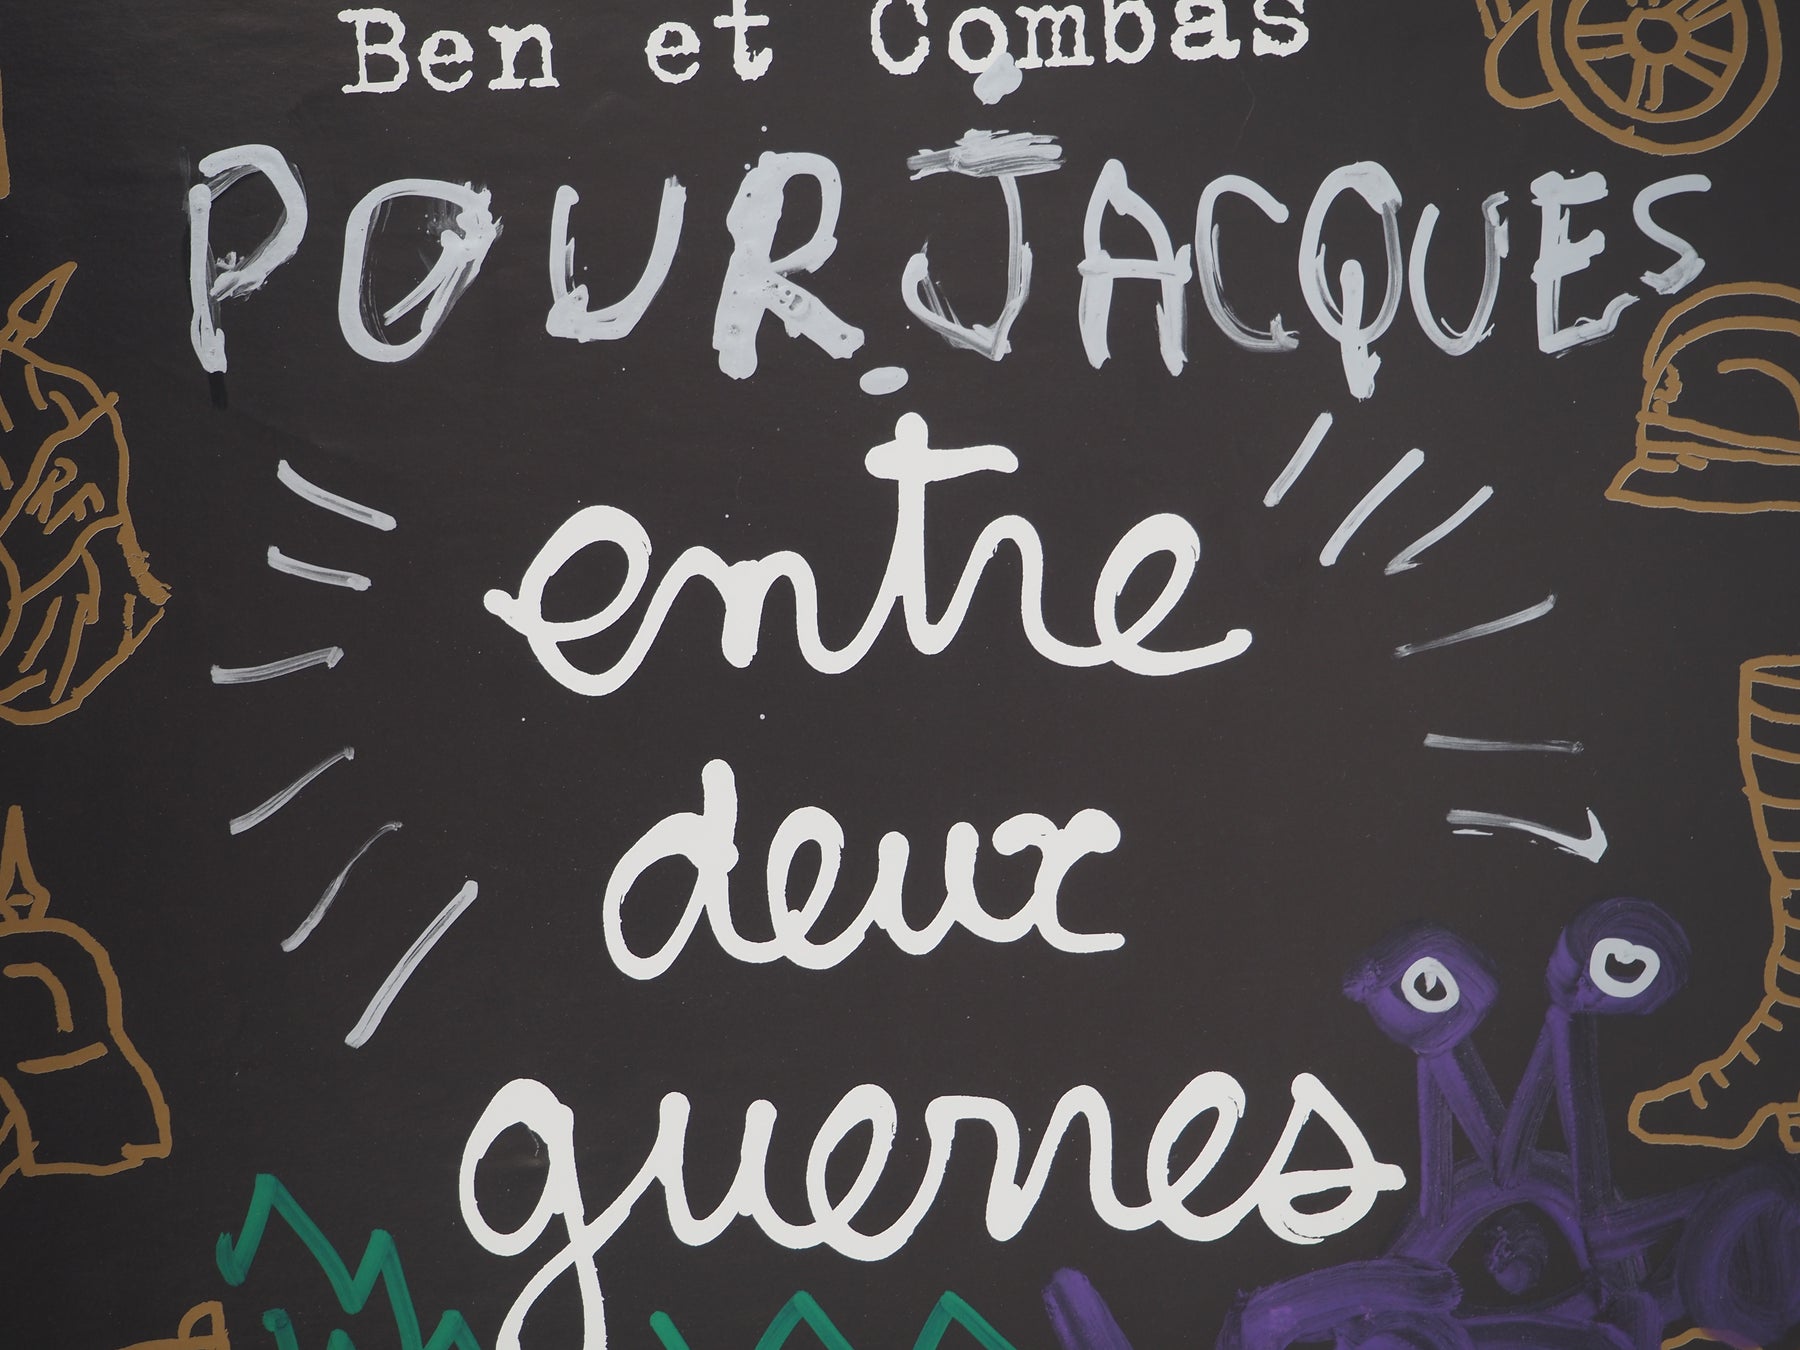 Ben et Combas
POUR JACQUES
entre
deux
guerres